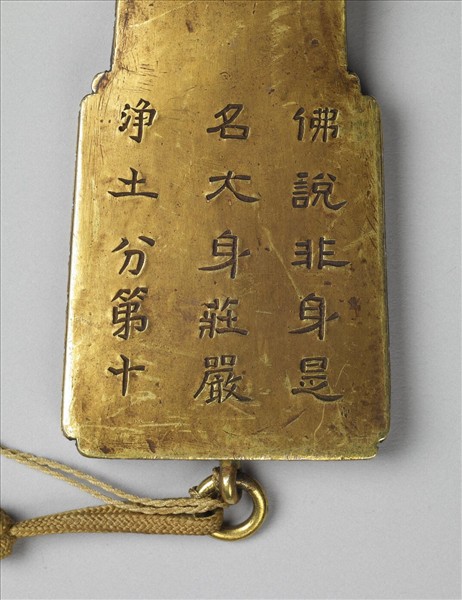 佛說非身是
名大身莊嚴
淨土分第十